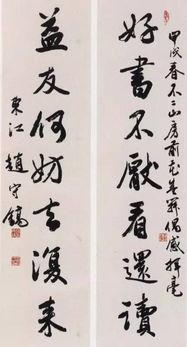 甲戌春不二山房前花茂興偶感揮毫
好書不厭看還讀
益友何妨去復來
東江 趙守鎬